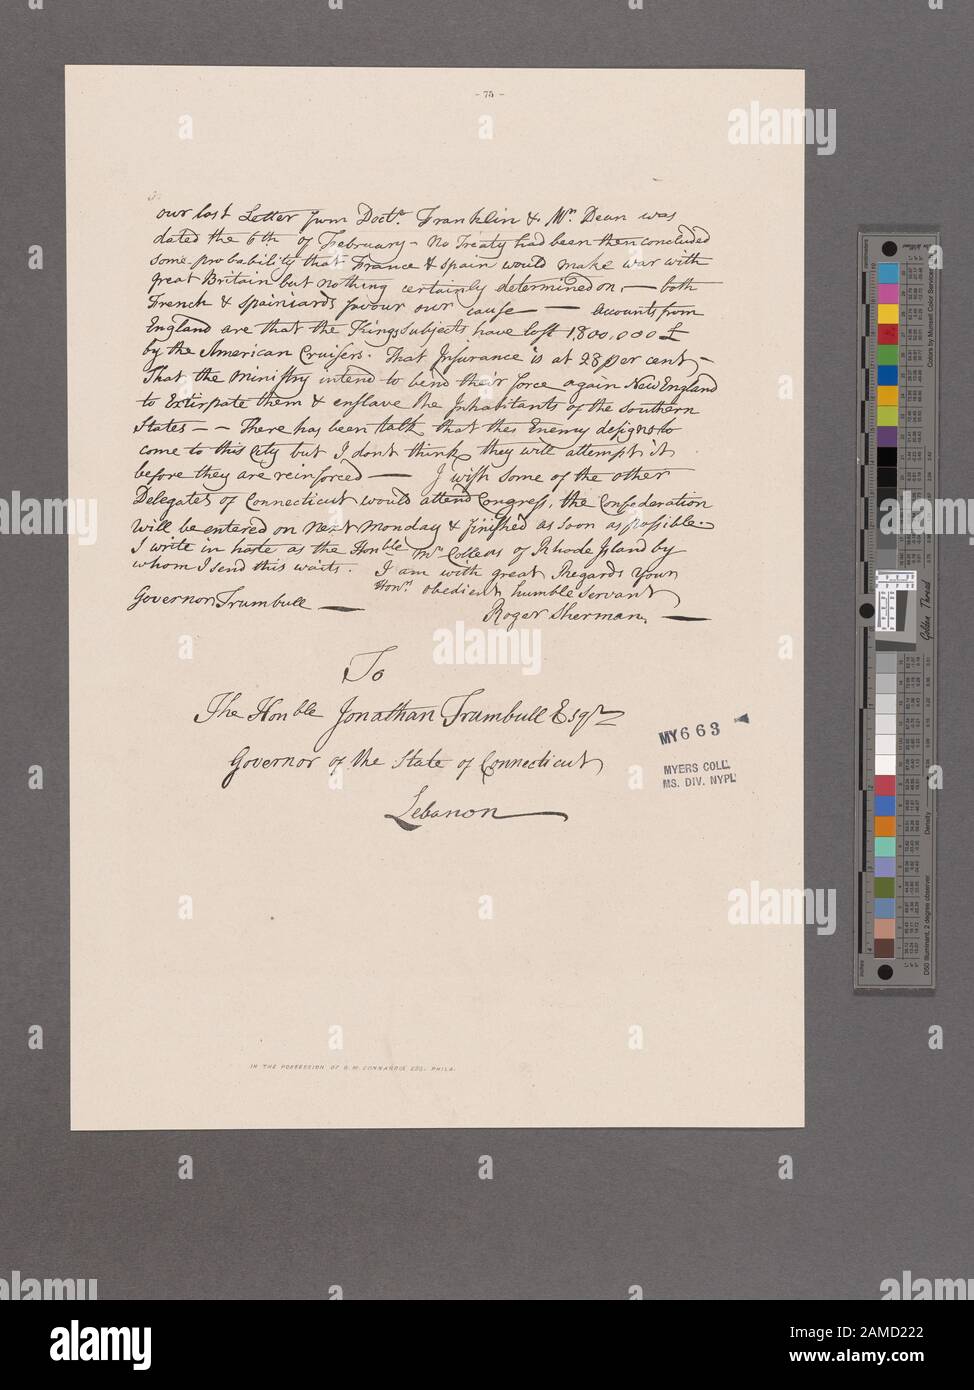 - 75 -
our last Letter from Doctr. Franklin & Mr. Dean was
dated the 6th of February - No Treaty had been then concluded
some probability that France & Spain would make war with
great Britain but nothing certainly determined on, — both
French & Spainiards favour our cause — Accounts from
England are that the Kings subjects have lost 1800,000 £
by the American Cruisers. That Insurance is at 28 per cent, -
That the Ministry intend to bend their force again New England
to Extirpate them & enslave the Inhabitants of the Southern
States - - There has been talk that the Enemy designs to
come to this City but I dont think they will attempt it
before they are reinforced — I wish some of the other
Delegates of Connecticut would attend Congress, the Confederation
will be entered on next Monday & finished as soon as possible.
I write in haste as the Honble Mr. Collens of Rhode Island by
whom I send this waits. I am with great Regards your
Honrs. obedient, humble Servant
Governor Trumbull —
Roger Sherman, —
To
The Honble Jonathan Trumbull Esqr.
Governor of the State of Connecticut
Lebanon
MY 663
MYERS COLL.
MS. DIV. NYPL
IN THE POSSESSION OF ESQ. PHILA.
Golden Thread
Colors by Munsell Color Services
Density
D50 Illuminant, 2 degree observer
inches
centimeters
alamy
alamy
Image ID: 2AMD222
www.alamy.com